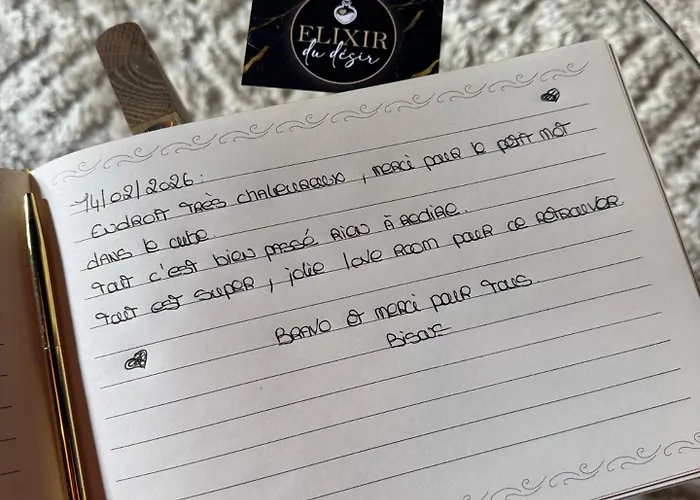 ELIXIR
du désir
14/02/2026.
ENDROIT TRÈS CHALEUREUX, MERCI POUR le PETIT MOT
DANS le cube
TOUT c'EST bien PASSÉ RIEN À REDIRE.
TOUT EST SUPER, jolie love ROOM POUR SE RETROUVER.
BRAVO ET MERCI POUR TOUS.
BISOUS